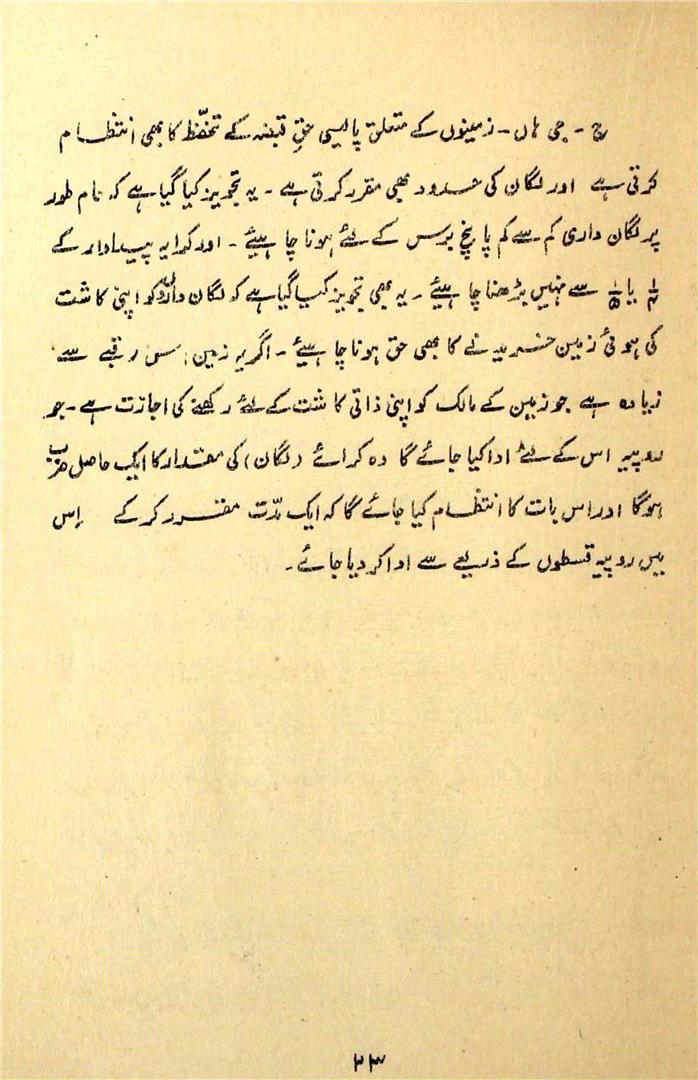 ج - جی ہاں - زمینوں کے متعلق پالیسی حقِ قبضہ کے تحفّظ کا بھی انتظام
کرتی ہے اور لگان کی حدود بھی مقرر کرتی ہے - یہ تجویز کیا گیا ہے کہ عام طور
پر لگان داری کم سے کم پانچ برس کے لئے ہونا چاہیئے - اور کرایہ پیداوار کے
¼ یا ⅕ سے نہیں بڑھنا چاہیئے - یہ بھی تجویز کیا گیا ہے کہ لگان دار کو اپنی کاشت
کی ہوئی زمین خریدنے کا بھی حق ہونا چاہیئے - اگر یہ زمین اس رقبے سے
زیادہ ہے جو زمین کے مالک کو اپنی ذاتی کاشت کے لئے رکھنے کی اجازت ہے - جو
روپیہ اس کے لئے ادا کیا جائے گا وہ کرائے (لگان) کی مقدار کا ایک حاصل ضرب
ہوگا اور اس بات کا انتظام کیا جائے گا کہ ایک مدّت مقرر کر کے اِس
میں روپیہ قسطوں کے ذریعے سے ادا کر دیا جائے -
۲۳